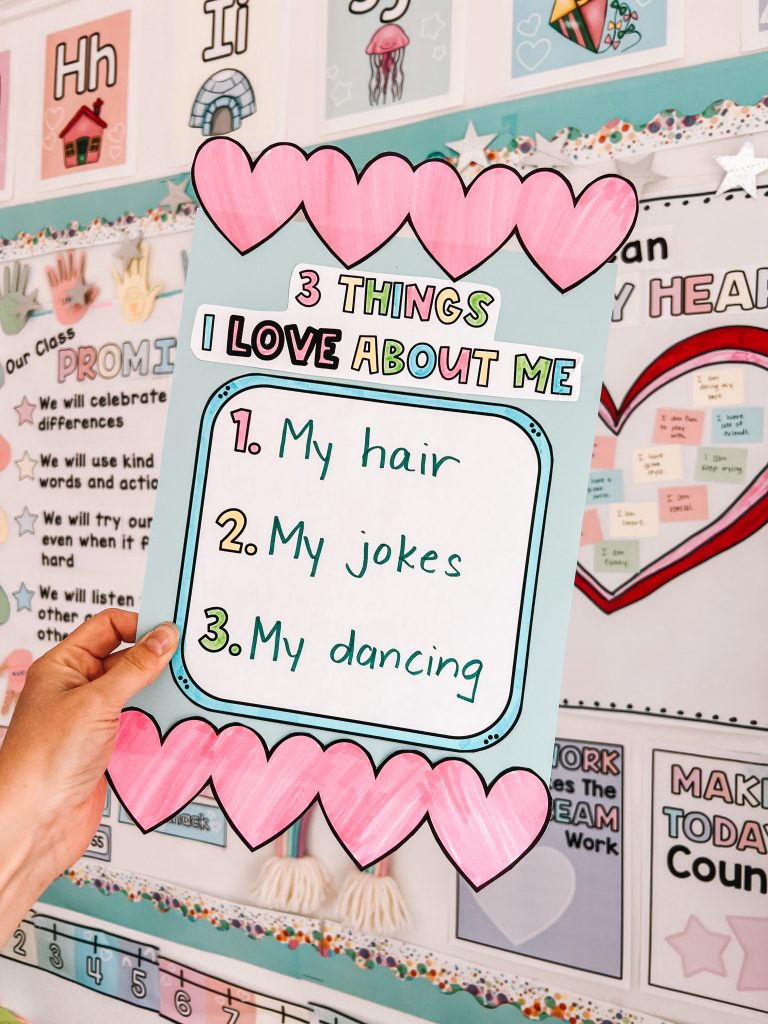 Hh
Ii
3 THINGS
I LOVE ABOUT ME
1. My hair
2. My jokes
3. My dancing
Our Class
PROMI
We will celebrate
differences
We will use kind
words and actio
We will try our
even when it
hard
We will listen
other
othe
HEAR
I am
doing my
best.
I am fun
to play
with.
I have
lots of
friends.
I can
keep trying
I am
special.
I am
funny.
WORK
es The
EAM
Work
MAKE
TODAY
Coun
2 3 4 5 6 7